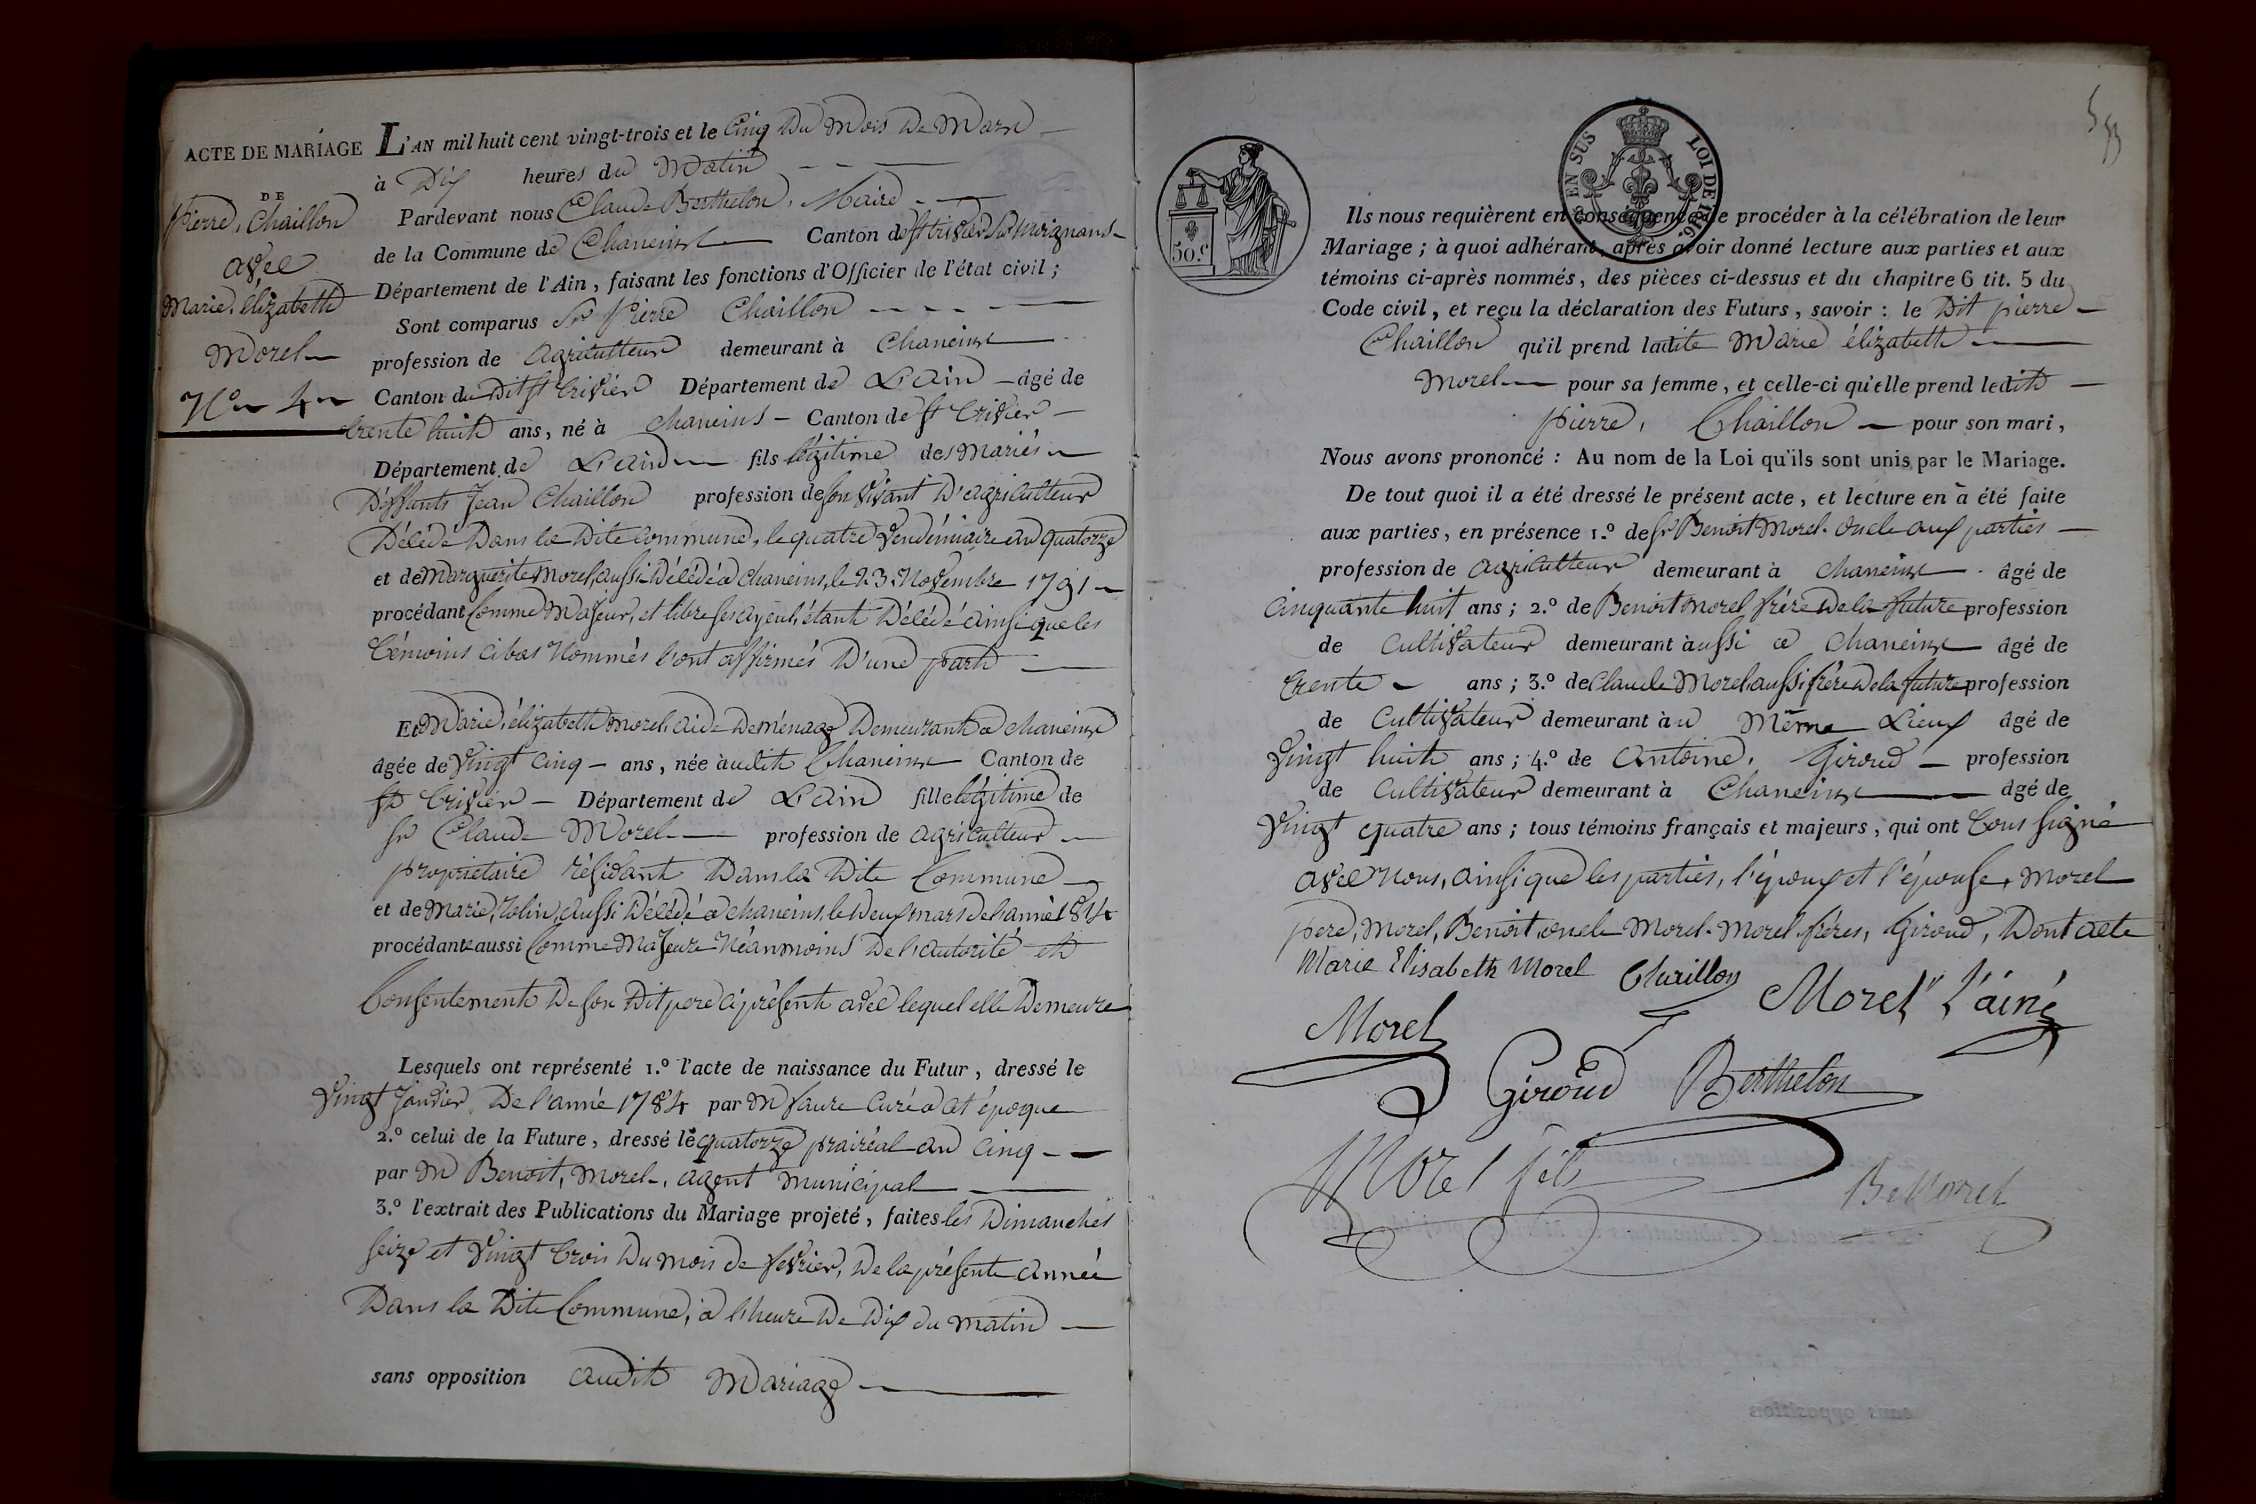 ACTE DE MARIAGE
DE
Pierre, Chaillon
avec
Marie. élizabeth
Morel
No 4
L'AN mil huit cent vingt-trois et le Cinq du Mois de Mars
à Dix heures du Matin
Pardevant nous Claude Berthelon, Maire
de la Commune de Chaneins Canton de St trivier Sr Moignans
Département de l'Ain, faisant les fonctions d'Officier de l'état civil ;
Sont comparus Sr Pierre Chaillon
profession de agriculteur demeurant à Chaneins
Canton du Dit St trivier Département de L'ain âgé de
trente huit ans, né à Chaneins Canton de St trivier
Département de L'ain fils légitime des Mariés
Deffunts Jean Chaillon profession de son vivant D'agriculteur
Décédé Dans la Dite Commune, le quatre Vendémiaire an quatorze
et de Marguerite Morel, aussi Décédé a Chaneins, le 23 Novembre 1791
procédant Comme Majeur, et libre ses ayeul, étant Décédé ainsi que les
témoins cibas Nommés l'ont affirmés D'une part
Et Marie, élizabeth Morel, aide De Ménage Demeurant a Chaneins
âgée de Vingt Cinq ans, née audit Chaneins Canton de
St trivier Département de L'ain fille légitime de
Sr Claude Morel profession de agriculteur
propriétaire résidant Dans la Dite Commune
et de Marie, aussi Décédé a Chaneins, le Deux mars de l'année 1814
procédante aussi Comme Majeure Néanmoins De l'autorité et
Consentement De Son Dit pere ci présent avec lequel elle Demeure
Lesquels ont représenté 1.º l'acte de naissance du Futur, dressé le
Vingt Janvier De l'année 1784 par M faure Curé a cet époque
2.º celui de la Future, dressé le quatorze prairéal an Cinq
par M Benoit, Morel, agent municipal
3.º l'extrait des Publications du Mariage projeté, faites les Dimanches
seize et Vingt trois Du mois de fevrier, De la présente année
Dans la Dite Commune, a l'heure De Dix du matin
sans opposition audit Mariage
50.c
EN SUS LOI DE 1816.
Ils nous requièrent en conséquence de procéder à la célébration de leur
Mariage ; à quoi adhérant, après avoir donné lecture aux parties et aux
témoins ci-après nommés, des pièces ci-dessus et du chapitre 6 tit. 5 du
Code civil, et reçu la déclaration des Futurs, savoir : le Dit pierre
Chaillon qu'il prend ladite Marie élizabeth
Morel pour sa femme, et celle-ci qu'elle prend ledit
pierre, Chaillon pour son mari,
Nous avons prononcé : Au nom de la Loi qu'ils sont unis par le Mariage.
De tout quoi il a été dressé le présent acte, et lecture en a été faite
aux parties, en présence 1.º de Sr Benoit Morel. oncle aux parties
profession de agriculteur demeurant à Chaneins âgé de
Cinquante huit ans ; 2.º de Benoit Morel frére De la future profession
de Cultivateur demeurant aussi a Chaneins âgé de
trente ans ; 3.º de Claude Morel aussi frère De la future profession
de Cultivateur demeurant au Même Lieux âgé de
Vingt huit ans ; 4.º de Antoine, Giroud profession
de Cultivateur demeurant à Chaneins âgé de
Vingt quatre ans ; tous témoins français et majeurs, qui ont tous signé
avec Nous, ainsi que les parties, l'époux et l'épouse, Morel
pere, Morel, Benoit oncle Morel. Morel fréres, Giroud, Dont acte
Marie Elisabeth Morel Chaillon Morel L'ainé
Morel
Giroud Berthelon
Morel fils
B Morel